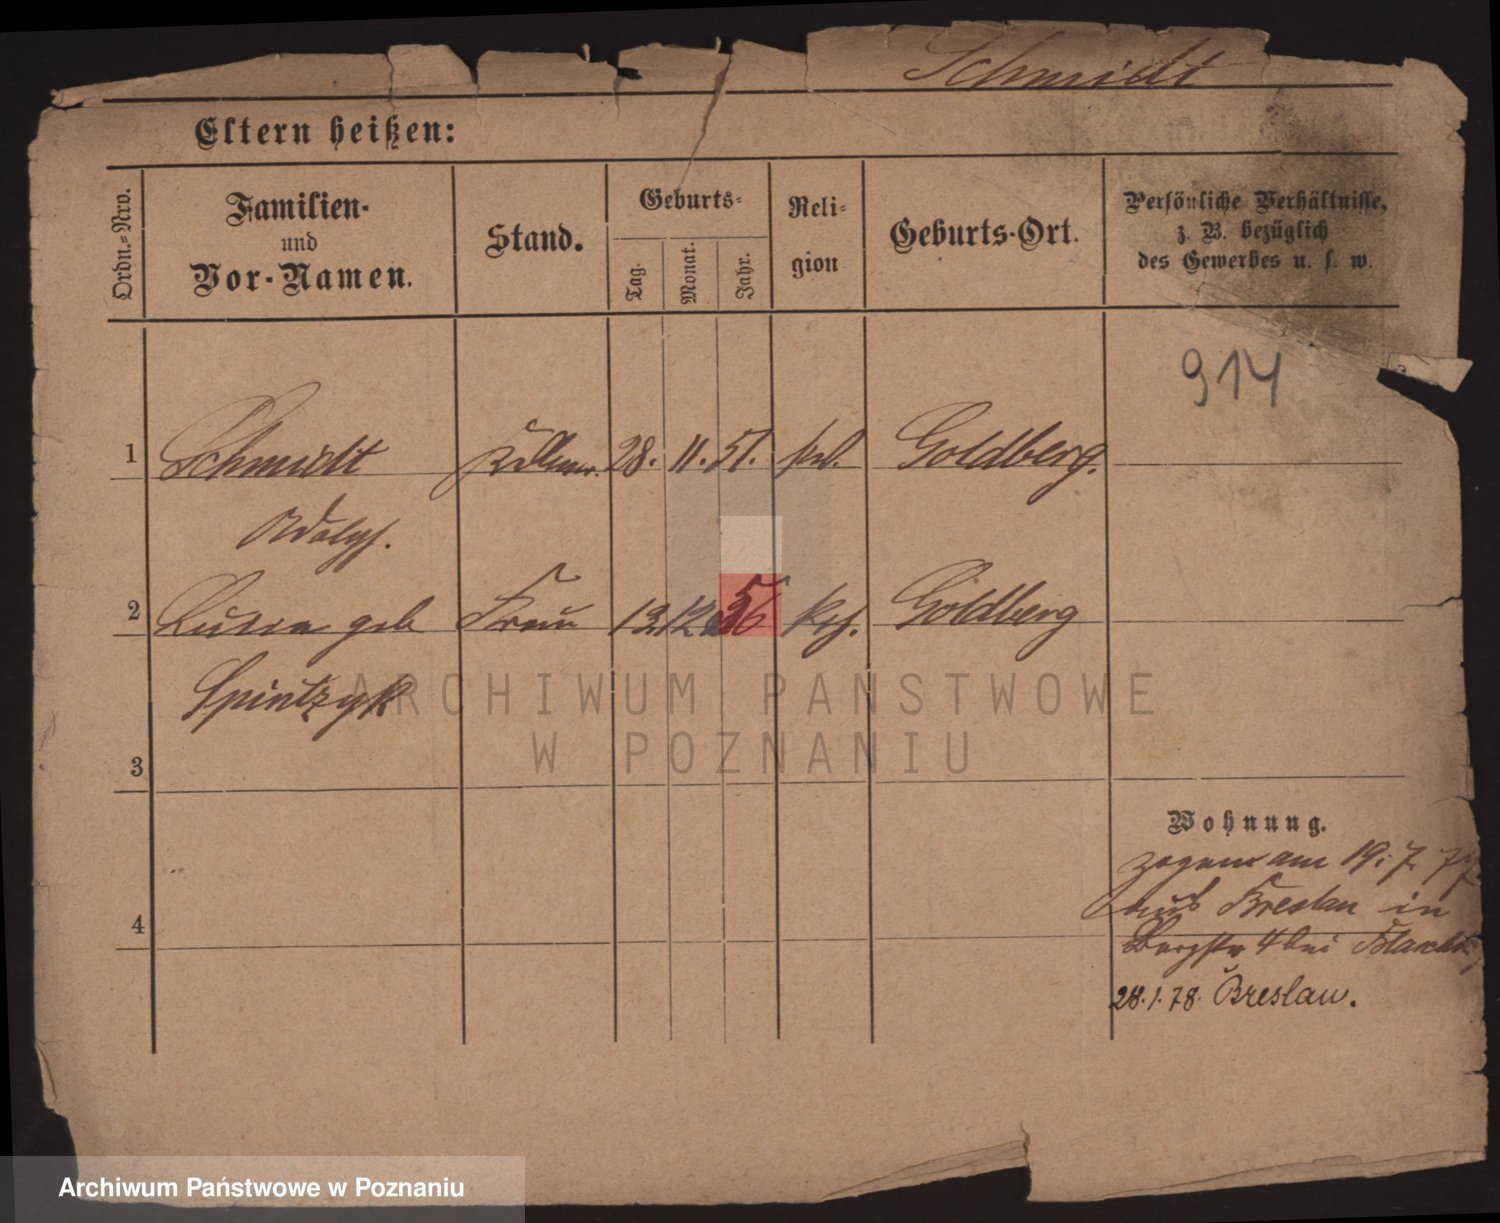 Schmidt
Eltern heißen:
Ordn.-Nro.
Familien-
und
Vor-Namen.
Stand.
Geburts-
Tag.
Monat.
Jahr.
Reli-
gion
Geburts-Ort.
Persönliche Verhältnisse,
z. B. bezüglich
des Gewerbes u. s. w.
914
1 Schmidt Kellner. 28. 11. 51. Goldberg.
Adolph.
2 geb Frau 12 56 Goldberg
3
4
ARCHIWUM PAŃSTWOWE
W POZNANIU
Wohnung.
zogen am 19. 7. 77
aus Breslau in
Bergstr 4 bei
28.1.78. Breslau.
Archiwum Państwowe w Poznaniu